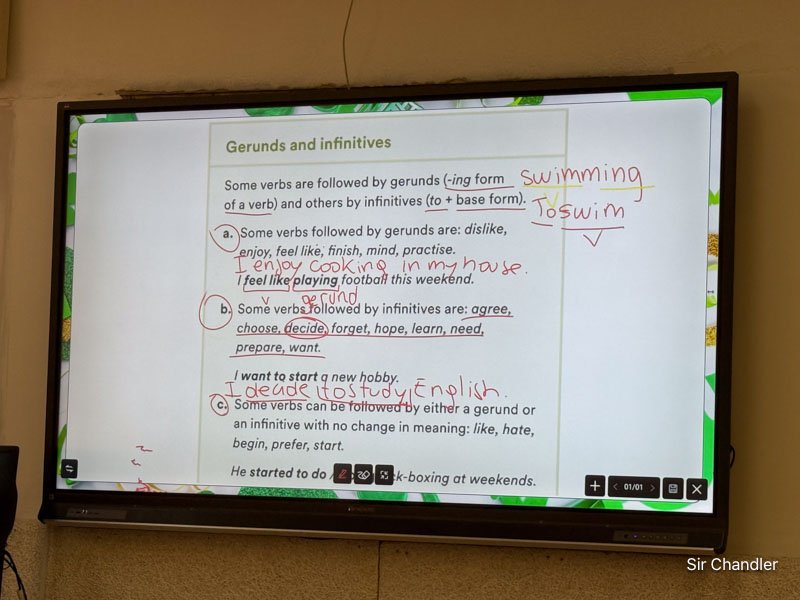 Gerunds and infinitives
Some verbs are followed by gerunds (-ing form swimming
V
of a verb) and others by infinitives (to + base form). To swim
V
a. Some verbs followed by gerunds are: dislike,
enjoy, feel like, finish, mind, practise.
I enjoy cooking in my house.
I feel like playing football this weekend.
v gerund
b. Some verbs followed by infinitives are: agree,
choose, decide, forget, hope, learn, need,
prepare, want.
I want to start a new hobby.
I decide to study English.
c. Some verbs can be followed by either a gerund or
an infinitive with no change in meaning: like, hate,
begin, prefer, start.
He started to do ck-boxing at weekends.
01/01
Sir Chandler